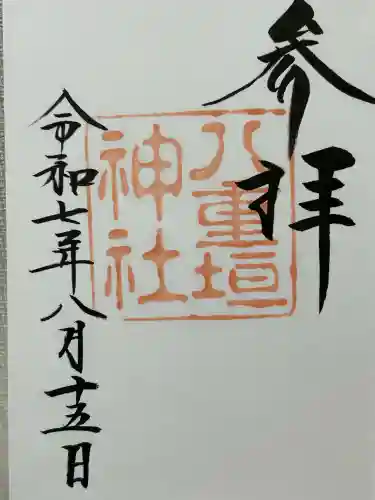 参拝
八重垣
神社
令和七年八月十五日